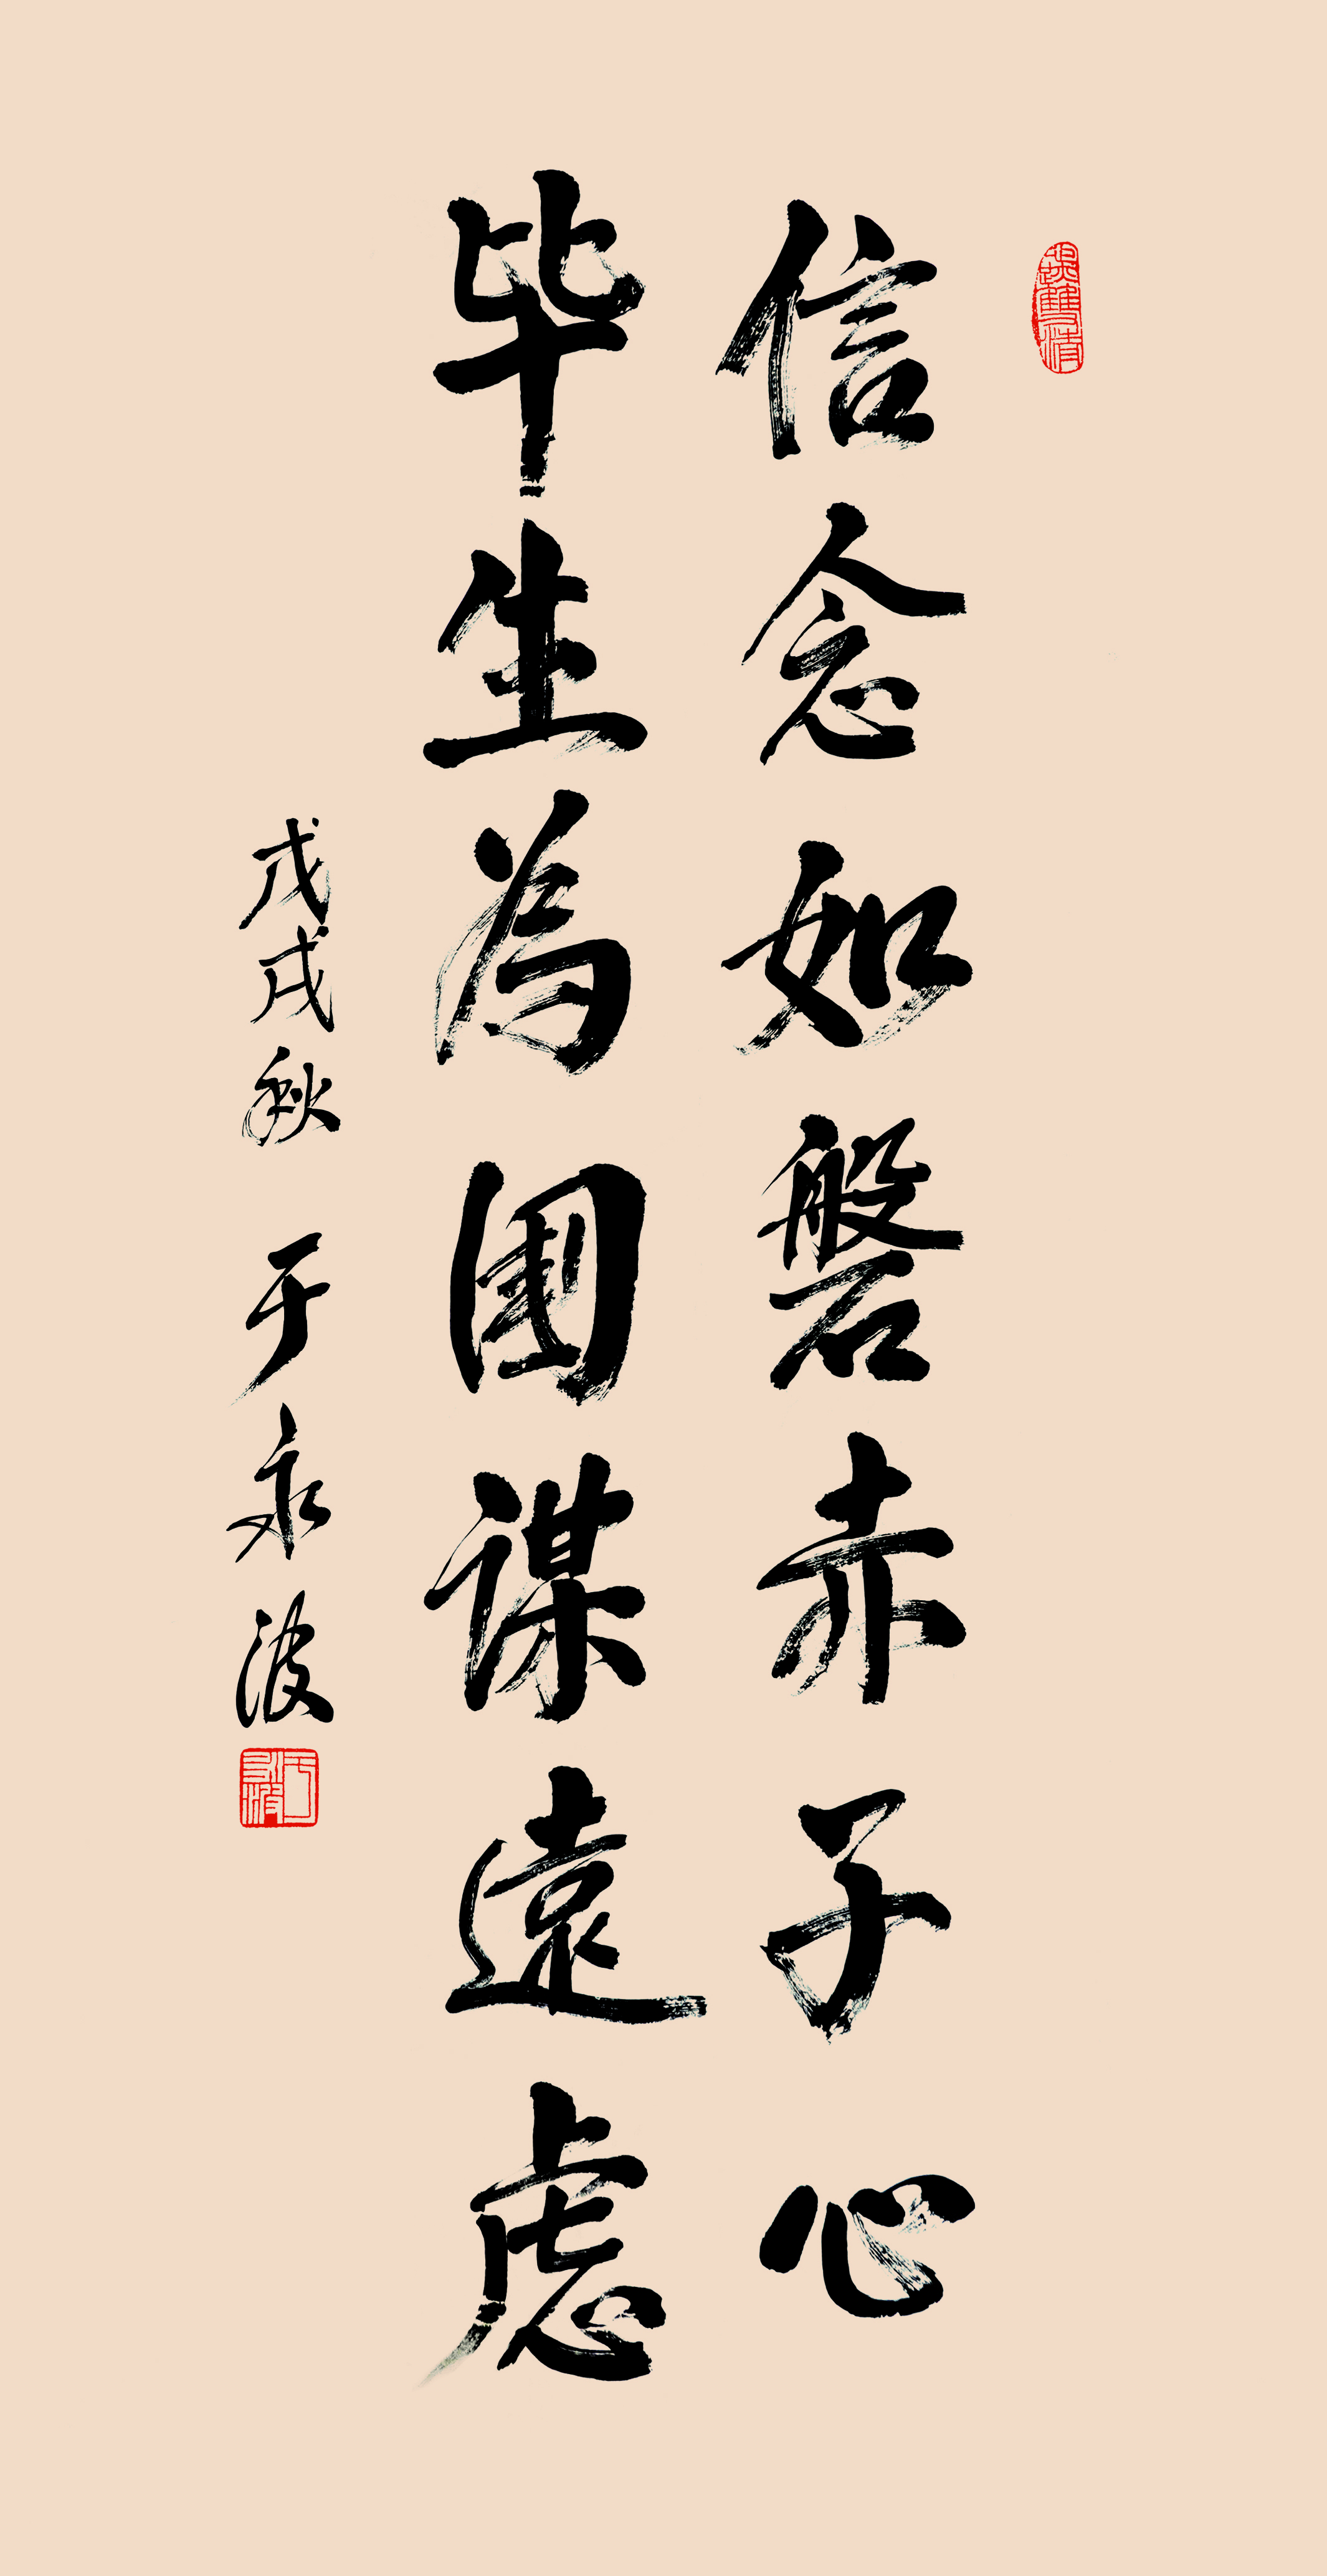 信念如磐赤子心
毕生為國谋遠虑
戊戌秋 于永波